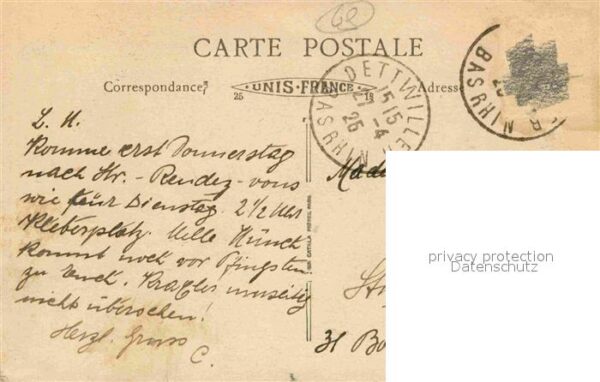 CARTE POSTALE
Correspondance
Adresse
25 UNIS-FRANCE 19
DETTWILLER
15 15
21 -4
26
BAS RHIN
BAS RHIN
L. H.
Komme erst Donnerstag
nach Str. - Rendez-vous
wie für Dienstag 2 1/2 Uhr
Kleberplatz. Mlle Münch
kommt noch vor Pfingsten
zu Euch. umseitig
nicht übersehen!
Herzl. Gruss
C.
Mad
St
31 Bo
privacy protection
Datenschutz